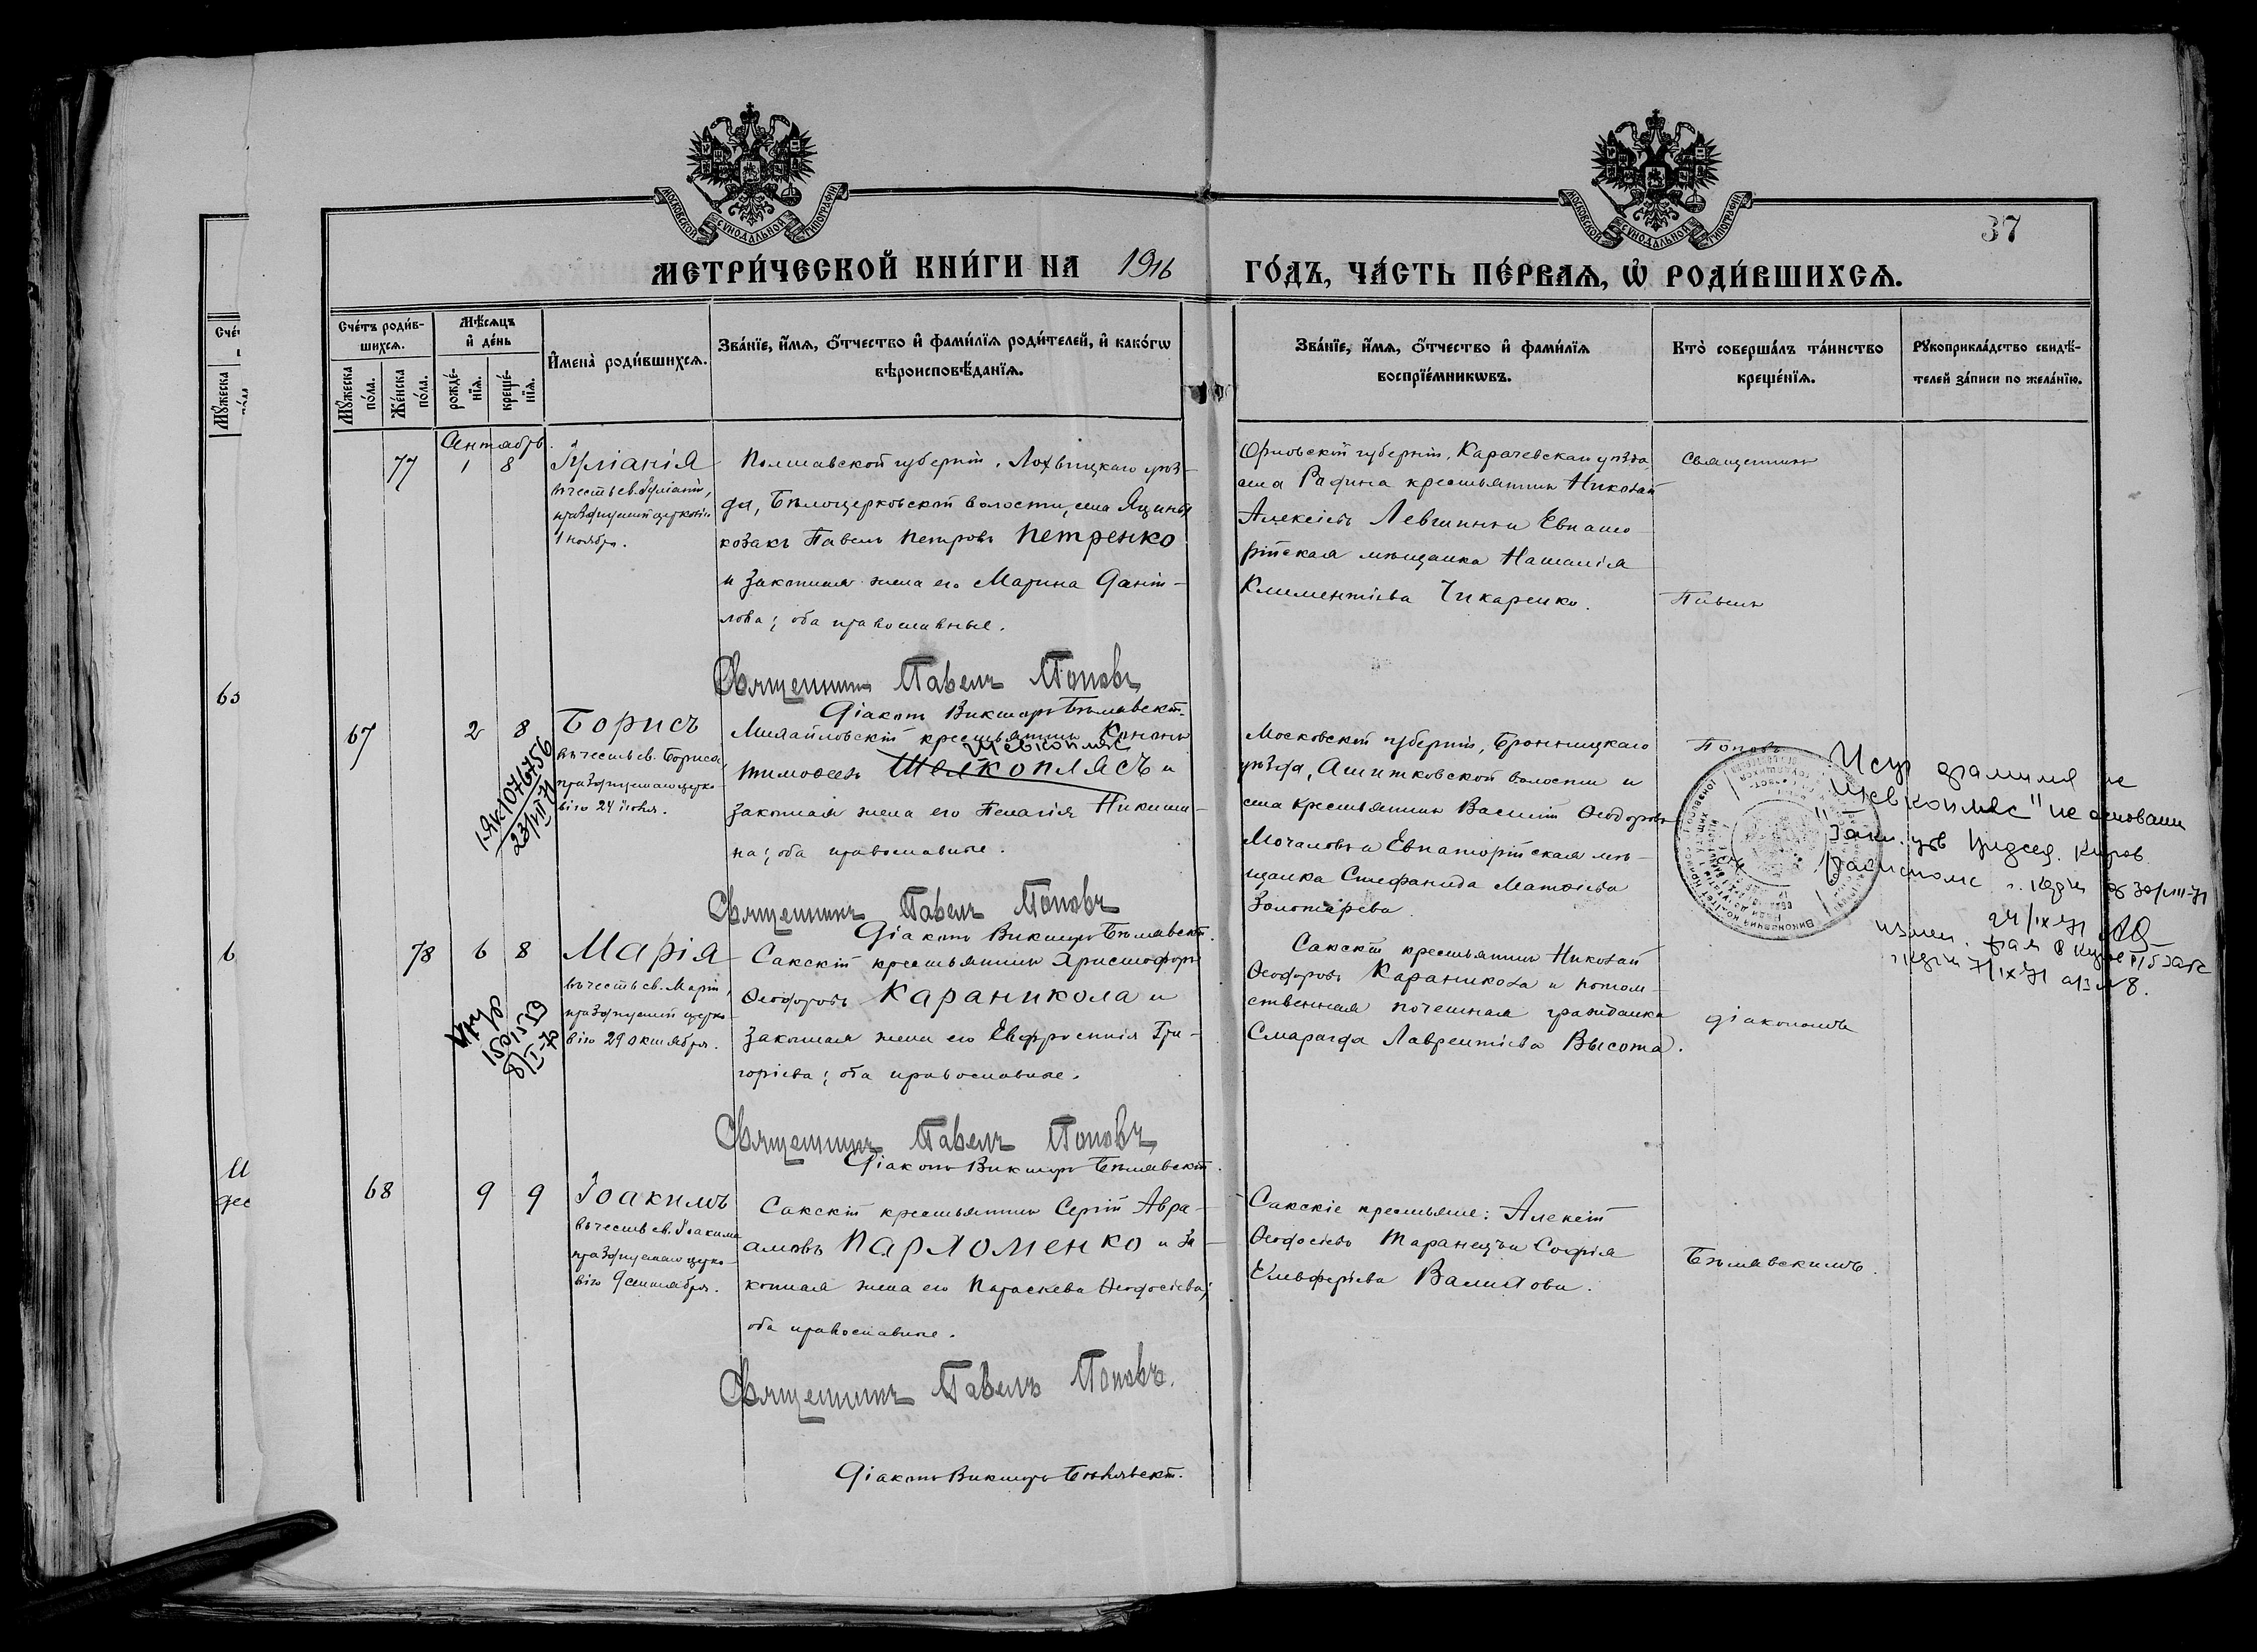 МОСКОВСКОЙ СѴНОДАЛЬНОЙ ТИПОГРАФІИ
МОСКОВСКОЙ СѴНОДАЛЬНОЙ ТИПОГРАФІИ
37
МЕТРИ́ЧЕСКОЙ КНИ́ГИ НА 1916
ГО́ДЪ, ЧА́СТЬ ПЕ́РВАѦ, Ѡ҆ РОДИ́ВШИХСѦ.
Сче́тъ роди́в-
шихсѧ.
Мꙋ́жеска по́ла.
Же́нска по́ла.
Мѣ́сѧцъ и҆ де́нь
рожде́-нїѧ.
креще́-нїѧ.
И҆мена̀ роди́вшихсѧ.
Зва́нїе, и҆́мѧ, ѻ҆́тчество и҆ фами́лїѧ роди́телей, и҆ како́гѡ
вѣроисповѣ́данїѧ.
Зва́нїе, и҆́мѧ, ѻ҆́тчество и҆ фами́лїѧ
воспрїе́мникѡвъ.
Кто̀ соверша́лъ та́инство
креще́нїѧ.
Рꙋкоприкла́дство свидѣ́-
телей за́писи по жела́нїю.
Сентябрь.
77
1 8
Іуліанія
въ честь св. Іуліаніи,
празднуемой церковію
1 ноября.
Полтавской губерніи, Лохвицкаго уѣз-
да, Бѣлоцерковской волости, села Яцины
козакъ Павелъ Петровъ Петренко
и законная жена его Марина Даніи-
лова; оба православные.
Священникъ Павелъ Поповъ
Діаконъ Викторъ Бѣлявскій.
Орловской губерніи, Карачевскаго уѣзда,
села Радина крестьянинъ Николай
Алексіевъ Левшинъ и Евпато-
рійская мѣщанка Наталія
Климентіева Чикаренко.
Священникъ
Павелъ
67
2 8
Борисъ
въ честь св. Бориса,
празднуемаго церко-
вію 24 іюля.
1ЯК 1076756
23/VIII 71
Михайловскій крестьянинъ Кононъ
Шевкопляс
Тимоѳеевъ Шелкоплясъ и
законная жена его Пелагія Никити-
на; оба православные.
Священникъ Павелъ Поповъ
Діаконъ Викторъ Бѣлявскій.
Московской губерніи, Бронницкаго
уѣзда, Ашитковской волости и
села крестьянинъ Василій Ѳеодоровъ
Мочаловъ и Евпаторійская мѣ-
щанка Стефанида Матѳіева
Золотарева.
Поповъ
фамилия
"Шевкопляс" на основании
24/IX 71
78
6 8
Марія
въ честь св. Маріи,
празднуемой церко-
вію 29 октября.
150/5159
8/I-70
Сакскій крестьянинъ Христофоръ
Ѳеодоровъ Караникола и
законная жена его Евфросинія Гри-
горіева; оба православные.
Священникъ Павелъ Поповъ
Діаконъ Викторъ Бѣлявскій.
Сакскій крестьянинъ Николай
Ѳеодоровъ Караникола и потом-
ственная почетная гражданка
Смарагда Лаврентіева Высота.
діакономъ
68
9 9
Іоакимъ
въ честь св. Іоакима
празднуемаго церко-
вію 9 сентября.
Сакскій крестьянинъ Сергій Авра-
амовъ Пархоменко и за-
конная жена его Параскева Ѳеодосіева;
оба православные.
Священникъ Павелъ Поповъ.
Діаконъ Викторъ Бѣлявскій.
Сакскіе крестьяне: Алексій
Ѳеодосіевъ Таранецъ и Софія
Елевферіева Валихова.
Бѣлявскимъ.